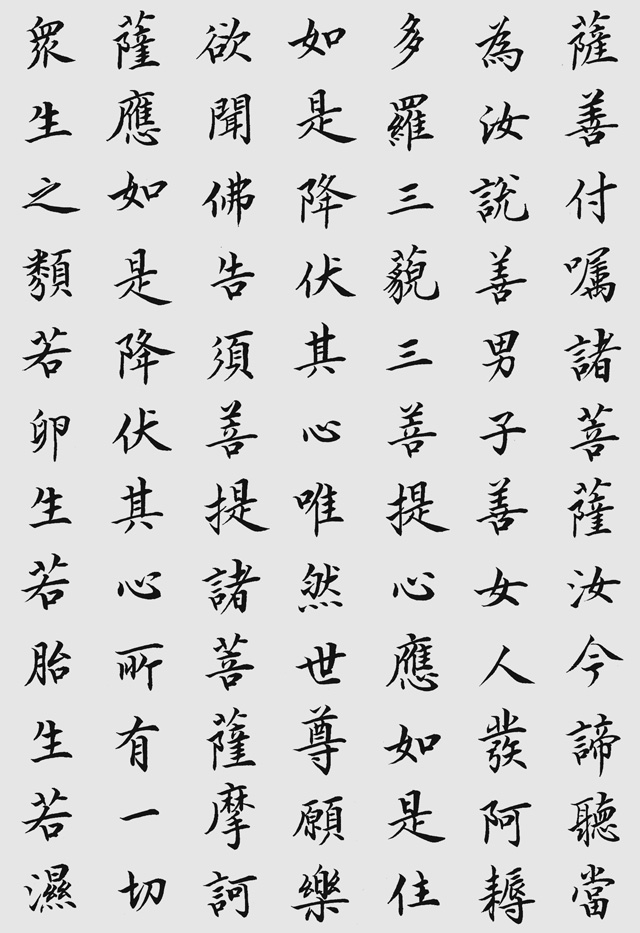 薩善付囑諸菩薩汝今諦聽當
為汝說善男子善女人發阿耨
多羅三藐三菩提心應如是住
如是降伏其心唯然世尊願樂
欲聞佛告須菩提諸菩薩摩訶
薩應如是降伏其心所有一切
眾生之類若卵生若胎生若濕